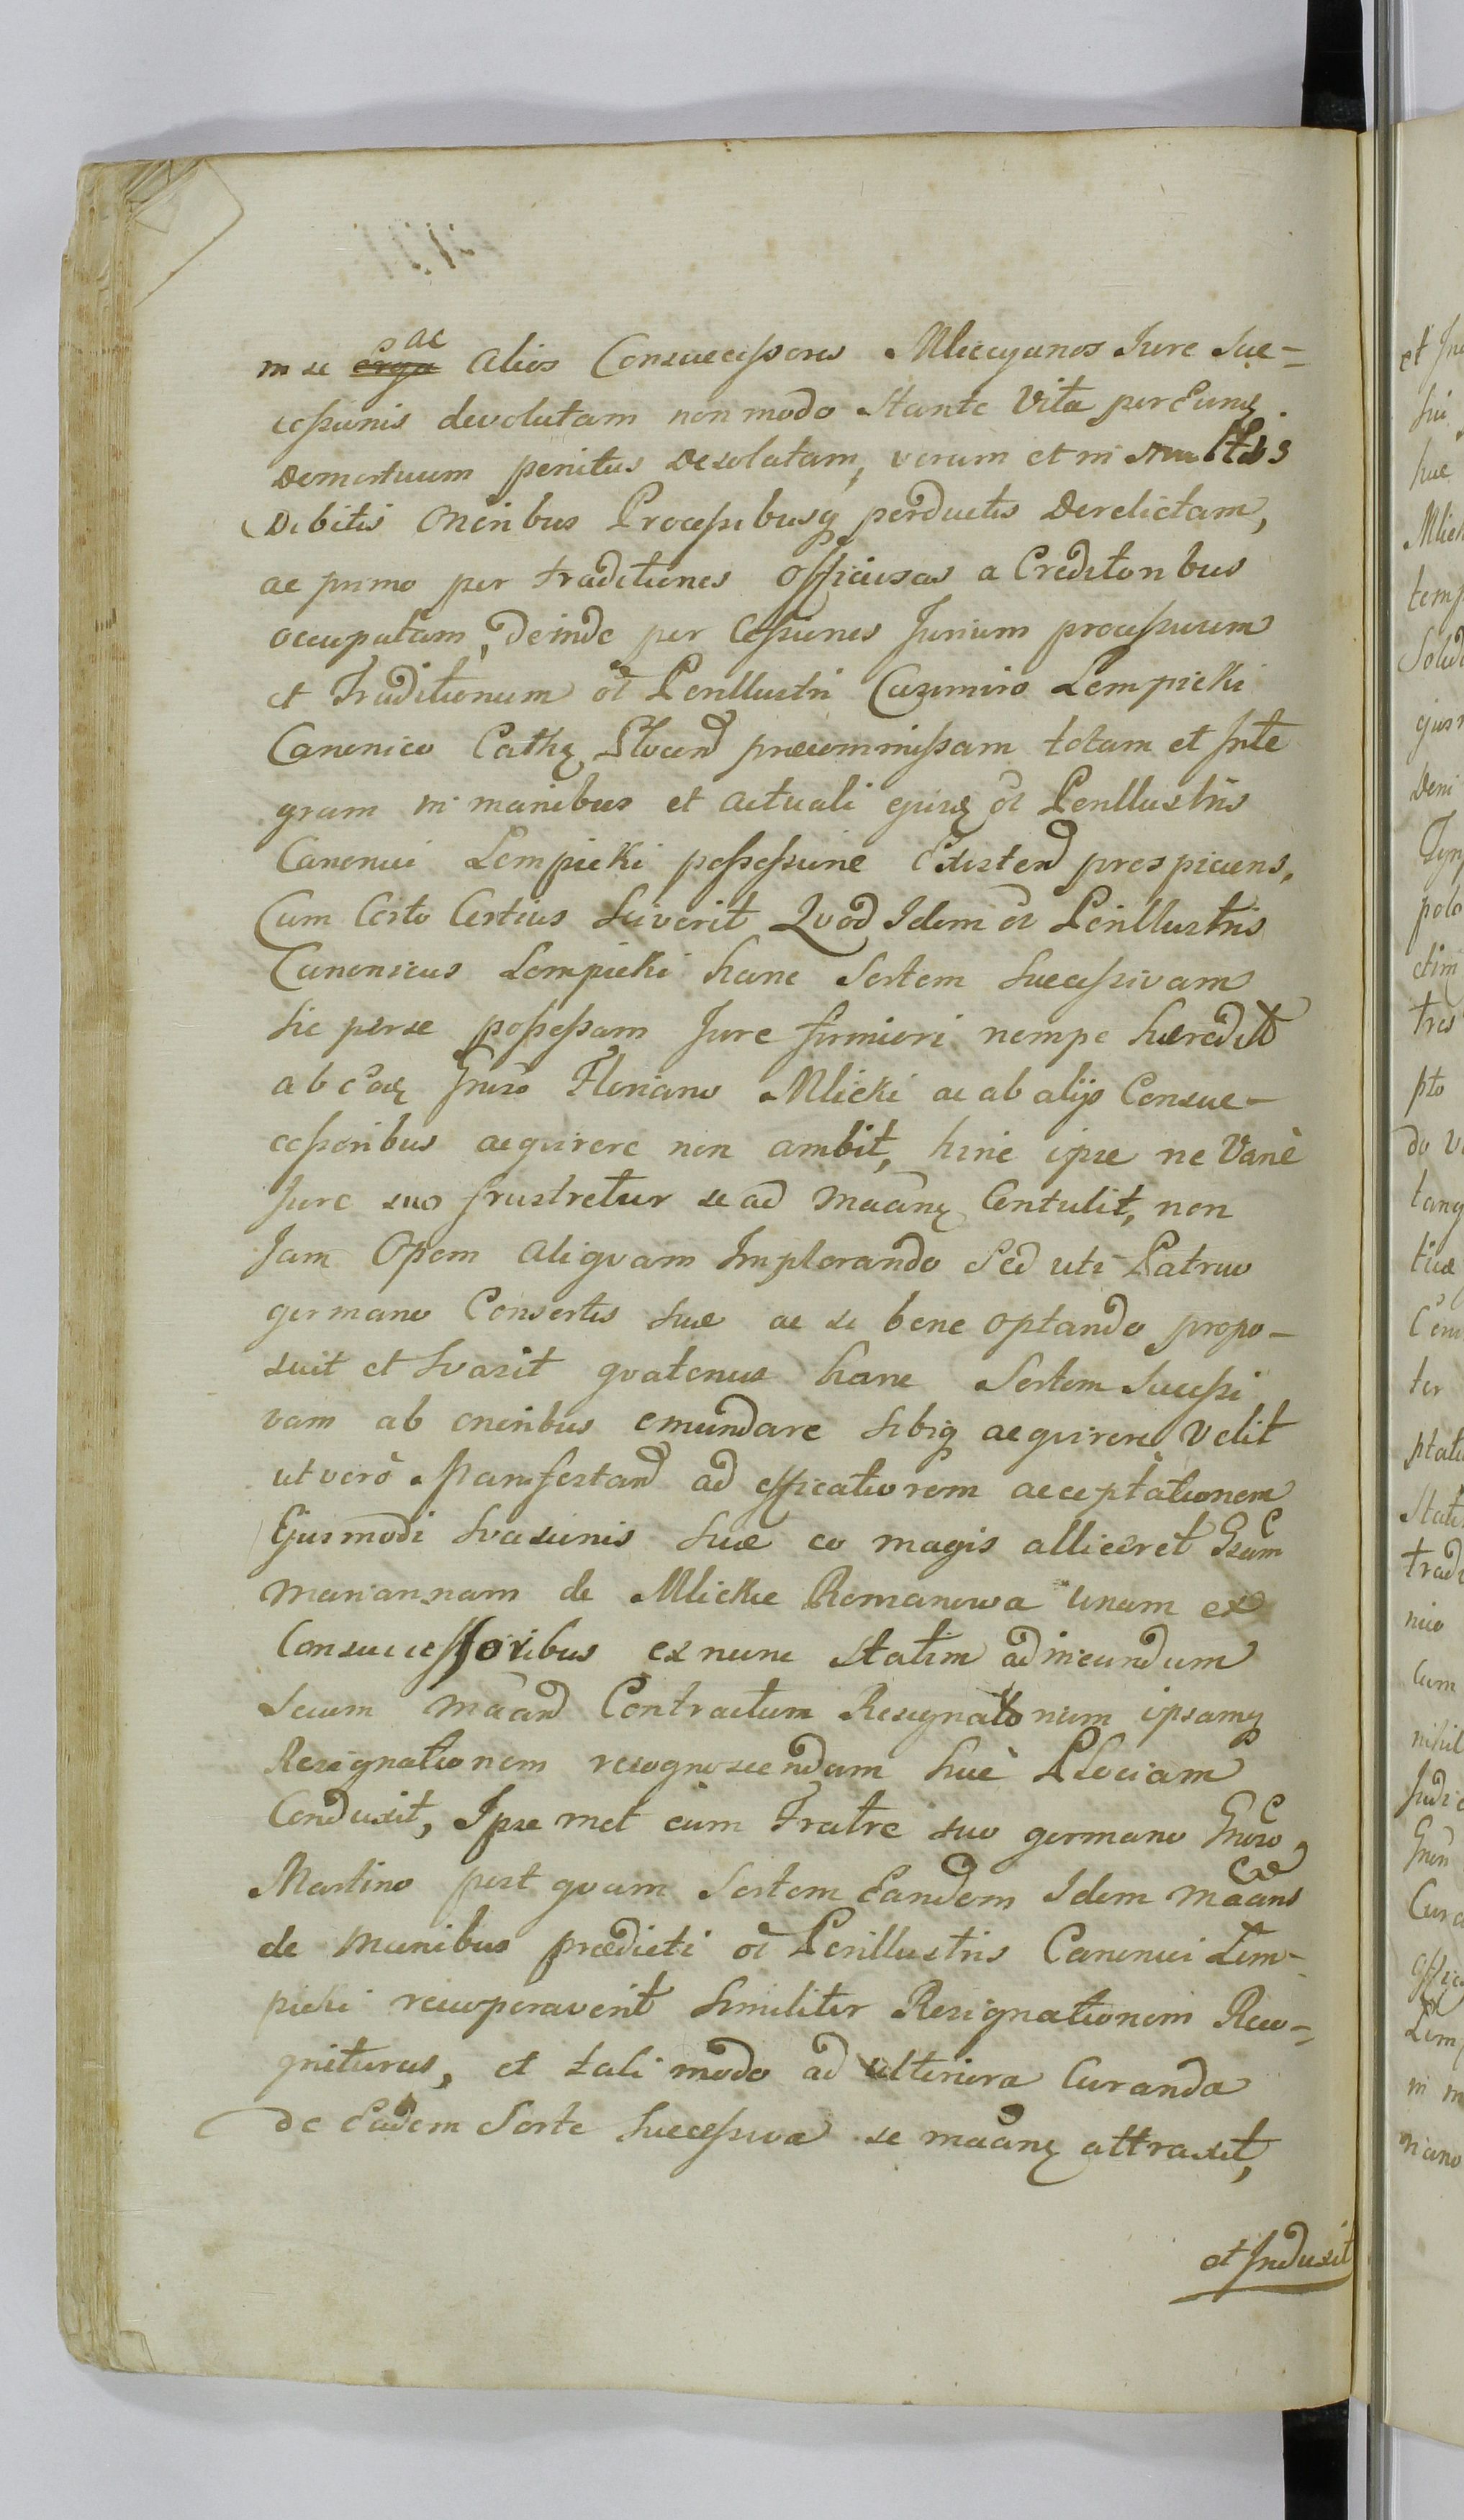 in se erga ac alios Consuccessores Mlicczanos Jure Suc-
cessionis devolutam non modo stante Vita per Eundę
Demortuum penitus desolatam, verum et in multis
Debitis Oneribus Processibusq perductis Derelictam,
ac primo per traditiones officiosas a Creditoribus
occupatam, deinde per Cessiones Jurium processuum
et Traditionum ol Perillustri Casimiro Lempicki
Canonico Cathę Plocen praecommissam totam et Inte
gram in manibus et actuali ejusę ol Perillustris
Canonici Lempicki possessione Existen prospiciens,
Cum Certo Certius Sciverit Qvod Idem ol Perillustris
Canonicus Lempicki hanc Sortem Successivam
sic per se possessam Jure firmiori nempe hæredit
ab Eodę Gnrso Floriano Mlicki ac ab alijs Consuc-
cessoribus acqvirere non ambit, hinc ipse ne Vanè
Jure suo frustretur se ad Maanę Contulit, non
Jam Opem aliqvam Implorando Sed uti Patruo
germano Consortis suæ ac si bene optando propo-
suit et Svasit qvatenus hanc Sortem Successi
vam ab oneribus emundare sibiq acqvirere Velit
ut verò Manifestan ad efficatiorem acceptationem
Ejusmodi Svasionis suæ eo magis alliceret Gsam
Mariannam de Mlickie Romanowa unam ex
Consuccessoribus ex nunc statim ad ineundum
Secum Maand Contractum Resignatonum ipsamq
Resignationem recognoscendam huc Plociam
Conduxit, Ipsemet cum Fratre suo germano Gnrso
Martino post qvam Sortem Eandem Idem Maans
de manibus prædicti ol Perillustris Canonici Lem-
picki recuperaverit similiter Resignationem Reco-
gniturus, et tali modo ad ulteriora Curanda
de Eadem Sorte Successiva se Maanę attraxit,
et Induxit